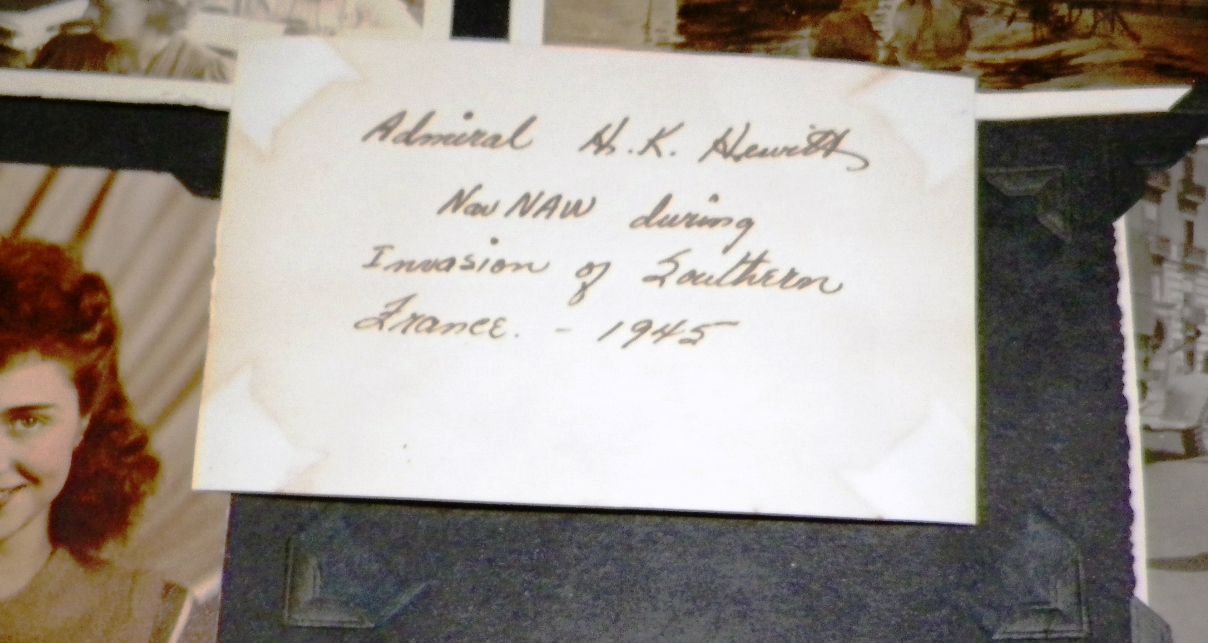 Admiral H.K. Hewitt
NavNAW during
Invasion of Southern
France. - 1945